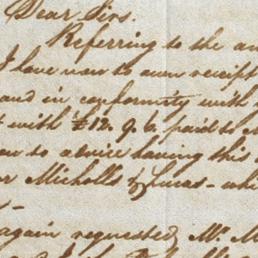 Dear Sirs.
Referring to the an
I love now to own receipt
and in conformity with
t with £12. 9. 6. paid to M
ou to advice having this
or Micholls & Lucas - whi
-
again requested, Mr. M